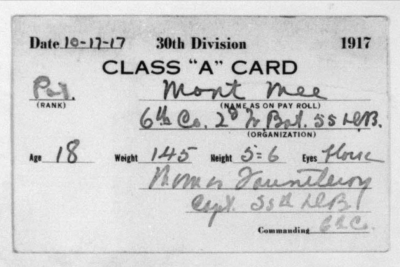 Date 10-17-17 30th Division 1917
CLASS "A" CARD
Pvt. Mont Mee
(RANK) (NAME AS ON PAY ROLL)
6th Co. 2d Bat. 55 D.B.
(ORGANIZATION)
Age 18 Weight 145 Height 5=6 Eyes
Thomas Fauntleroy
Capt. 55th D.B.
Commanding 6th Co.